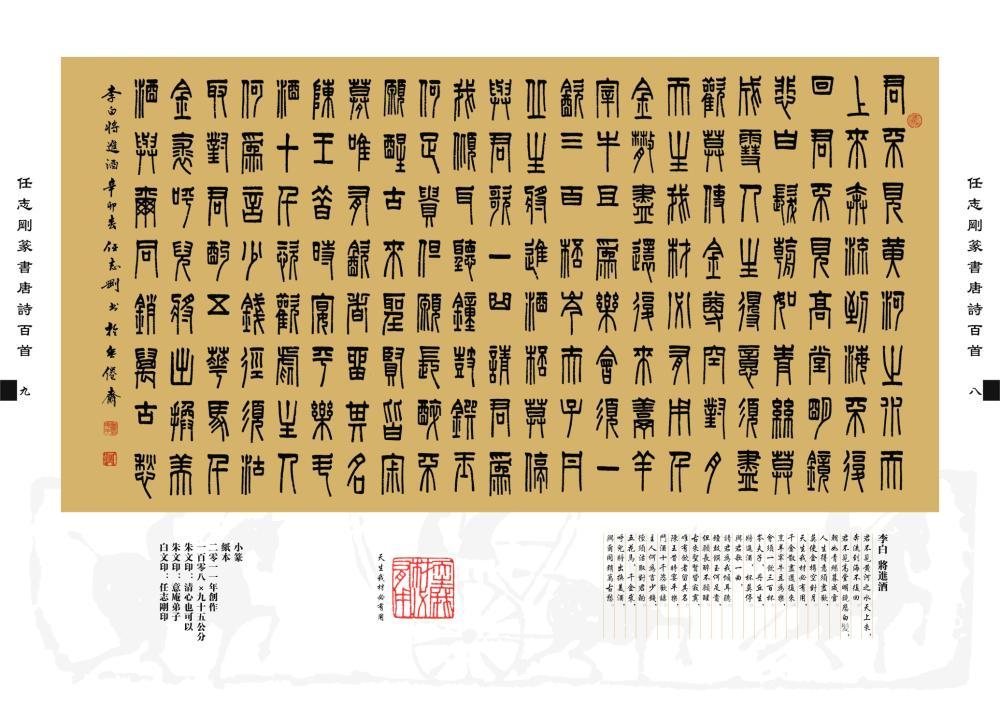 任志剛篆書唐詩百首
八
君不見黃河之水天
上來奔流到海不復
回君不見高堂明鏡
悲白髮朝如青絲莫
成雪人生得意須盡
歡莫使金尊空對月
天生我材必有用千
金散盡還復來烹羊
宰牛且爲樂會須一
飲三百杯岑夫子丹
丘生將進酒杯莫停
與君歌一曲請君爲
我傾耳聽鐘鼓饌玉
何足貴但願長醉不
願醒古來聖賢皆寂
寞唯有飲者留其名
陳王昔時宴平樂斗
酒十千恣歡謔主人
何爲言少錢徑須沽
取對君酌五花馬千
金裘呼兒將出換美
酒與爾同銷萬古愁
李白將進酒 辛卯春 任志剛書於無倦齋
李白 將進酒
君不見黃河之水天上來，
奔流到海不復回
君不見高堂明鏡悲白髮，
朝如青絲暮成雪
人生得意須盡歡
莫使金樽空對月
天生我材必有用，
千金散盡還復來
烹羊宰牛且爲樂
會須一飲三百杯
岑夫子，丹丘生
將進酒，杯莫停
與君歌一曲，
請君爲我傾耳聽
鐘鼓饌玉何足貴
但願長醉不願醒
古來聖賢皆寂寞，
唯有飲者留其名
陳王昔時宴平樂
鬥酒十千恣歡謔
主人何爲言少錢，
徑須沽取對君酌
五花馬，千金裘
呼兒將出換美酒，
與爾同銷萬古愁
天生我材必有用
小篆
紙本
二零一一年創作
一百零八×九十五公分
朱文印：清心也可以
朱文印：意庵弟子
白文印：任志剛印
任志剛篆書唐詩百首
九